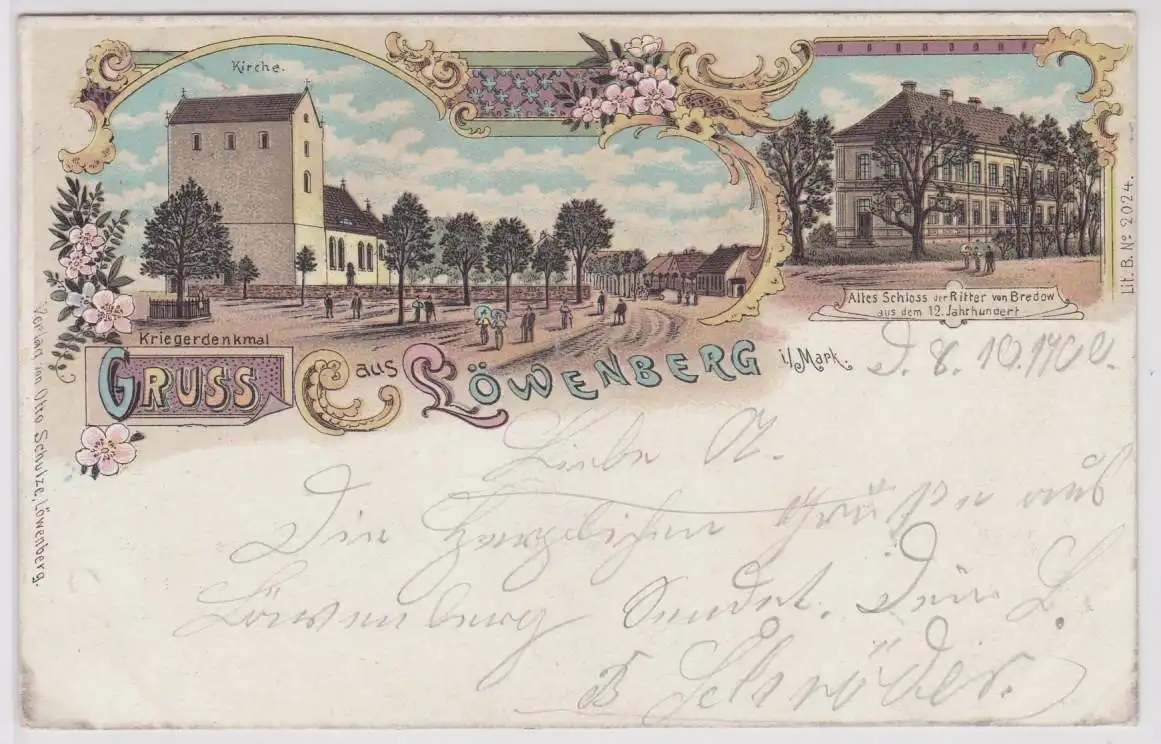 Kirche.
Altes Schloss der Ritter von Bredow
aus dem 12. Jahrhundert
Lit. B. No 2024.
Kriegerdenkmal
GRUSS aus LÖWENBERG i/Mark.
Verlag von Otto Schulze, Löwenberg.
D. 8. 10. 1902.
Liebe A.
Die herzlichen Grüße aus
Löwenberg Sendet. Dein L.
B Schröder.